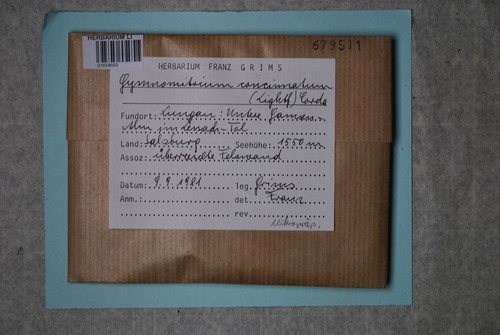 HERBARIUM LI
679511
HERBARIUM FRANZ GRIMS
Gymnomitrium concinnatum
(Lightf) Corda
Fundort: Lungau: Untere
Alm im Tal
Land: Salzburg Seehöhe: 1550 m
Assoz: überrieselte Felswand
Datum: 9.9.1981 leg. Grims
Anm.: det. Franz
rev.
Mikropräp.